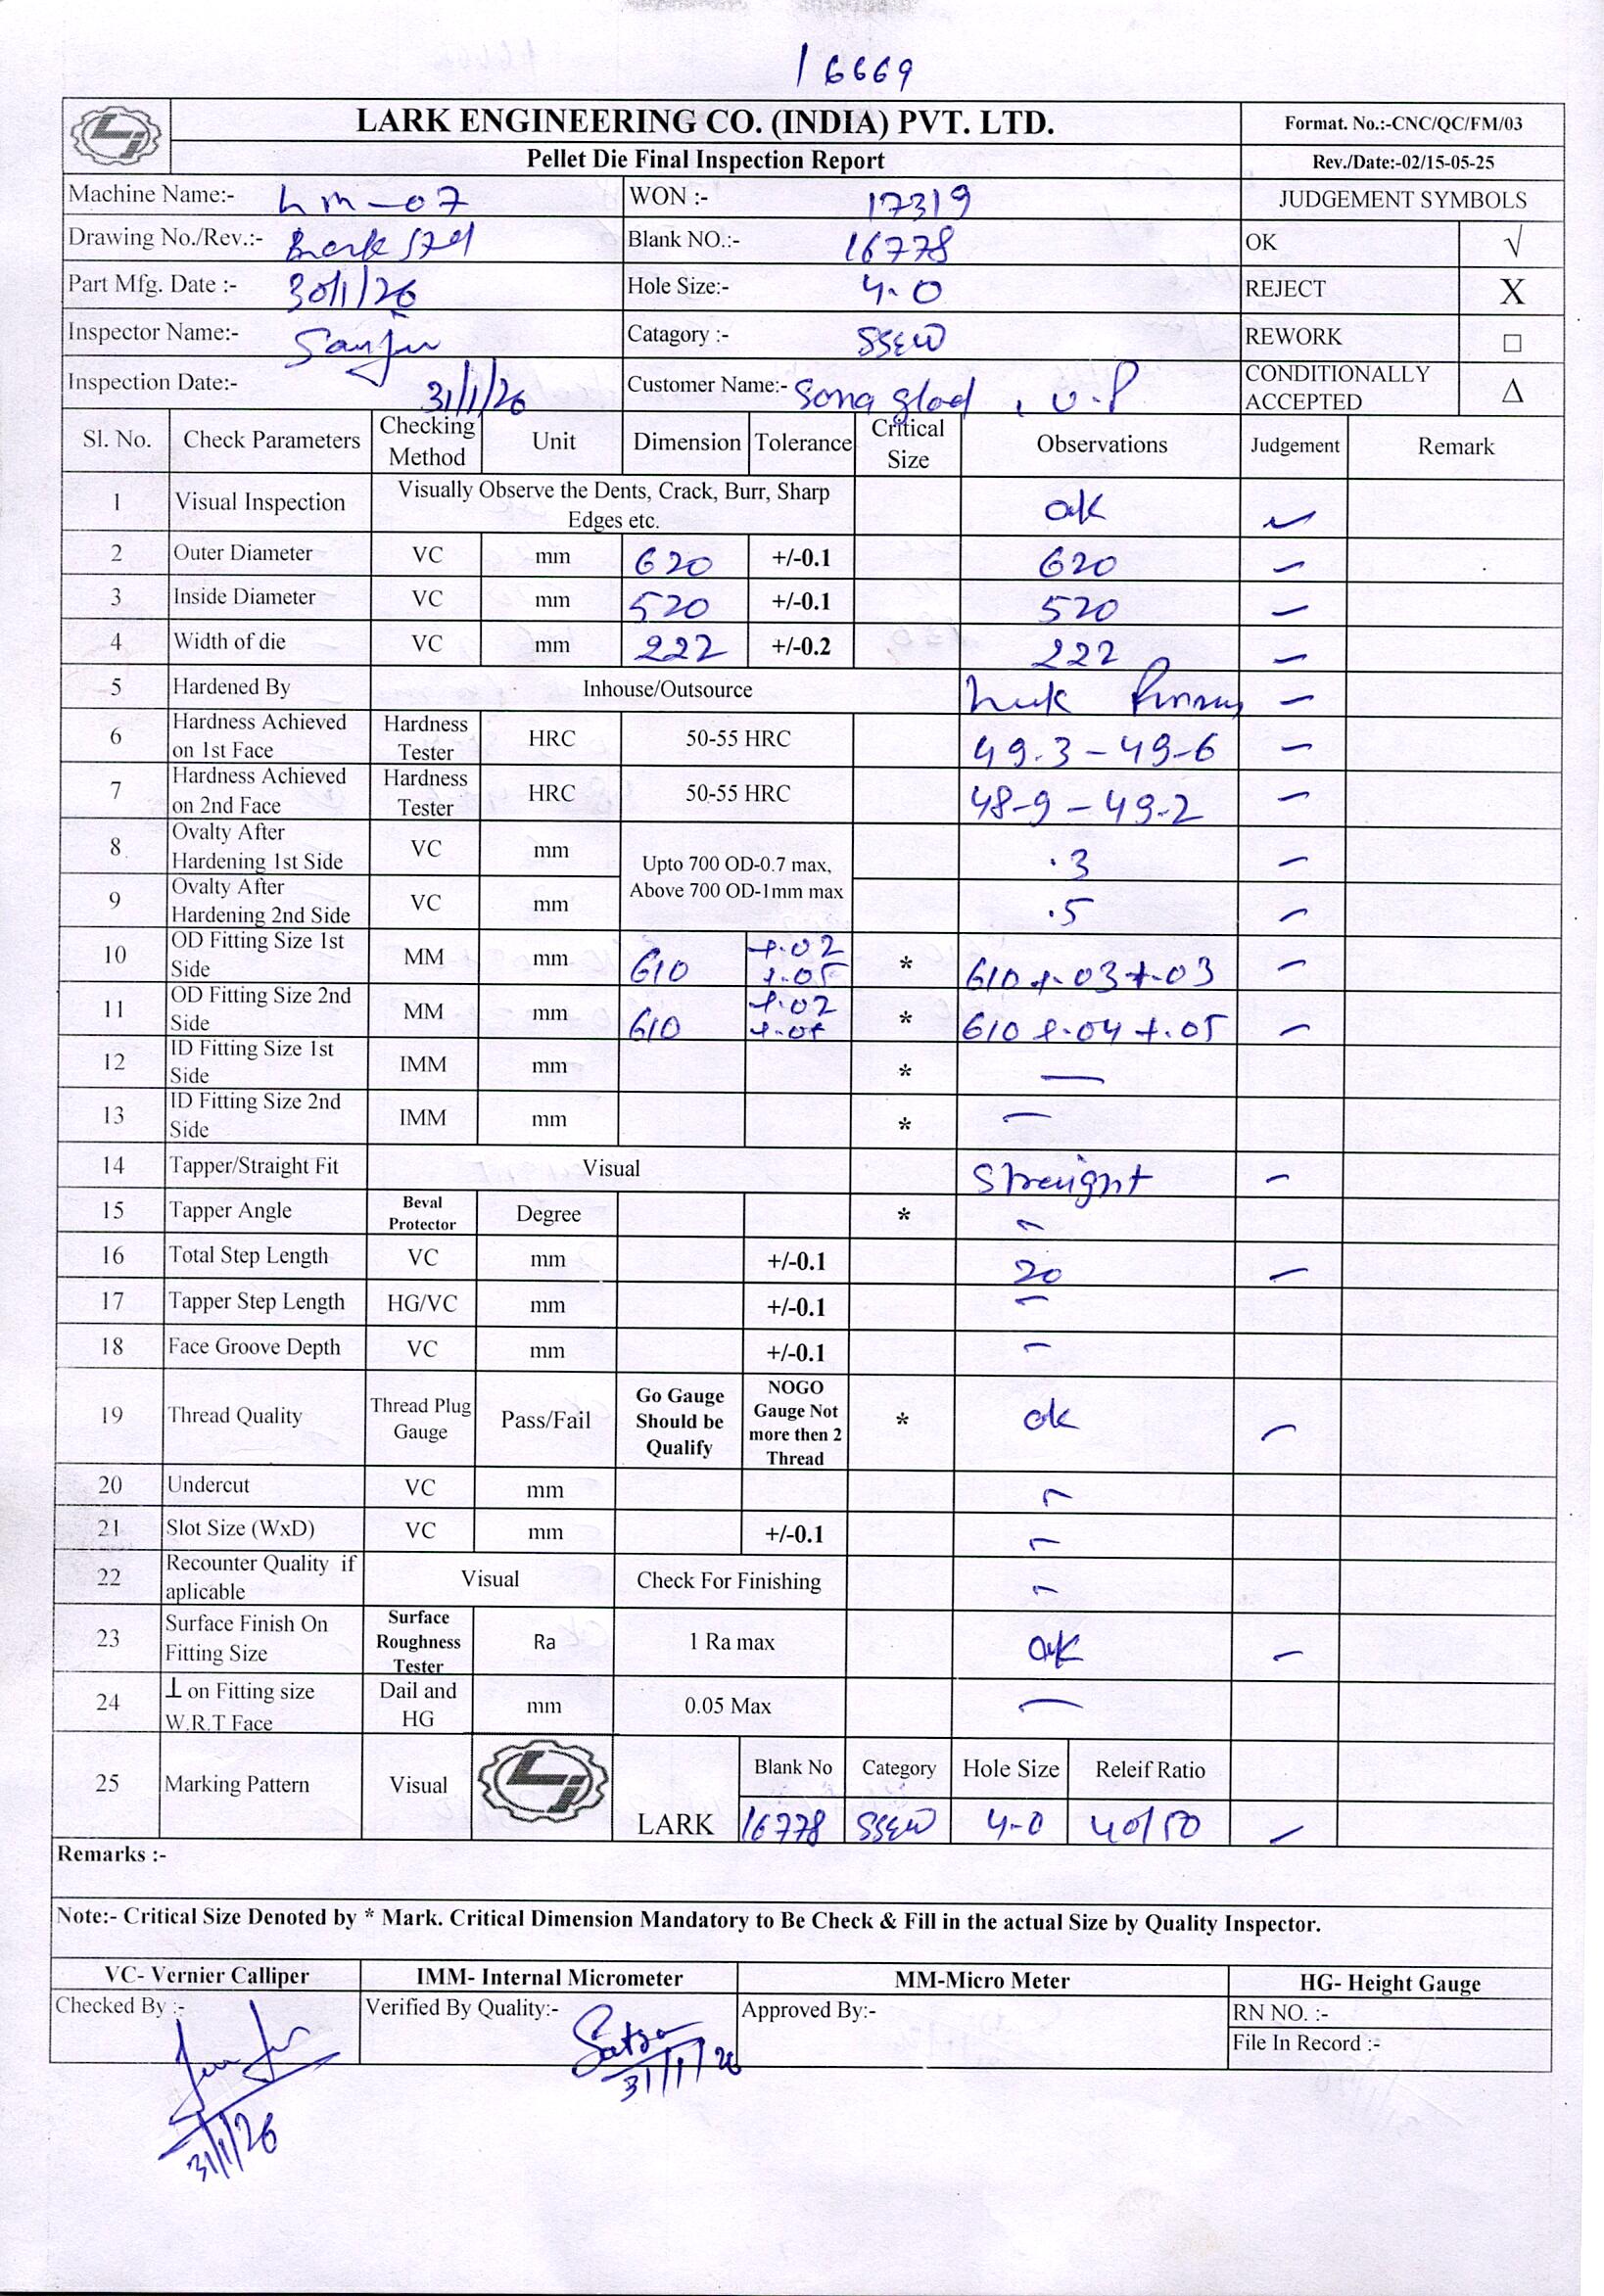 16669
LARK ENGINEERING CO. (INDIA) PVT. LTD.
Format. No.:-CNC/QC/FM/03
Pellet Die Final Inspection Report
Rev./Date:-02/15-05-25
Machine Name:- Lm-07 WON :- 17319 JUDGEMENT SYMBOLS
Drawing No./Rev.:- Blank NO.:- 16778 OK √
Part Mfg. Date :- 30/1/26 Hole Size:- 4.0 REJECT X
Inspector Name:- Sanju Catagory :- SSEW REWORK □
Inspection Date:- 31/1/26 Customer Name:- Sona , U.P CONDITIONALLY ACCEPTED Δ
Sl. No. Check Parameters Checking Method Unit Dimension Tolerance Critical Size Observations Judgement Remark
1 Visual Inspection Visually Observe the Dents, Crack, Burr, Sharp Edges etc. ok
2 Outer Diameter VC mm 620 +/-0.1 620
3 Inside Diameter VC mm 520 +/-0.1 520
4 Width of die VC mm 222 +/-0.2 222
5 Hardened By Inhouse/Outsource
6 Hardness Achieved on 1st Face Hardness Tester HRC 50-55 HRC 49.3 - 49.6
7 Hardness Achieved on 2nd Face Hardness Tester HRC 50-55 HRC 48.9 - 49.2
8 Ovalty After Hardening 1st Side VC mm Upto 700 OD-0.7 max, Above 700 OD-1mm max .3
9 Ovalty After Hardening 2nd Side VC mm .5
10 OD Fitting Size 1st Side MM mm 610 +.02 +.05 * 610 +.03 +.03
11 OD Fitting Size 2nd Side MM mm 610 +.02 * 610 +.04 +.05
12 ID Fitting Size 1st Side IMM mm * —
13 ID Fitting Size 2nd Side IMM mm * —
14 Tapper/Straight Fit Visual Straight
15 Tapper Angle Beval Protector Degree * -
16 Total Step Length VC mm +/-0.1 20
17 Tapper Step Length HG/VC mm +/-0.1 -
18 Face Groove Depth VC mm +/-0.1 -
19 Thread Quality Thread Plug Gauge Pass/Fail Go Gauge Should be Qualify NOGO Gauge Not more then 2 Thread * ok
20 Undercut VC mm -
21 Slot Size (WxD) VC mm +/-0.1 -
22 Recounter Quality if aplicable Visual Check For Finishing -
23 Surface Finish On Fitting Size Surface Roughness Tester Ra 1 Ra max ok
24 ⊥ on Fitting size W.R.T Face Dail and HG mm 0.05 Max —
25 Marking Pattern Visual LARK Blank No Category Hole Size Releif Ratio
16778 SSEW 4.0 40/50
Remarks :-
Note:- Critical Size Denoted by * Mark. Critical Dimension Mandatory to Be Check & Fill in the actual Size by Quality Inspector.
VC- Vernier Calliper IMM- Internal Micrometer MM-Micro Meter HG- Height Gauge
Checked By :- Verified By Quality:- Approved By:- RN NO. :-
File In Record :-
31/1/26
31/1/26